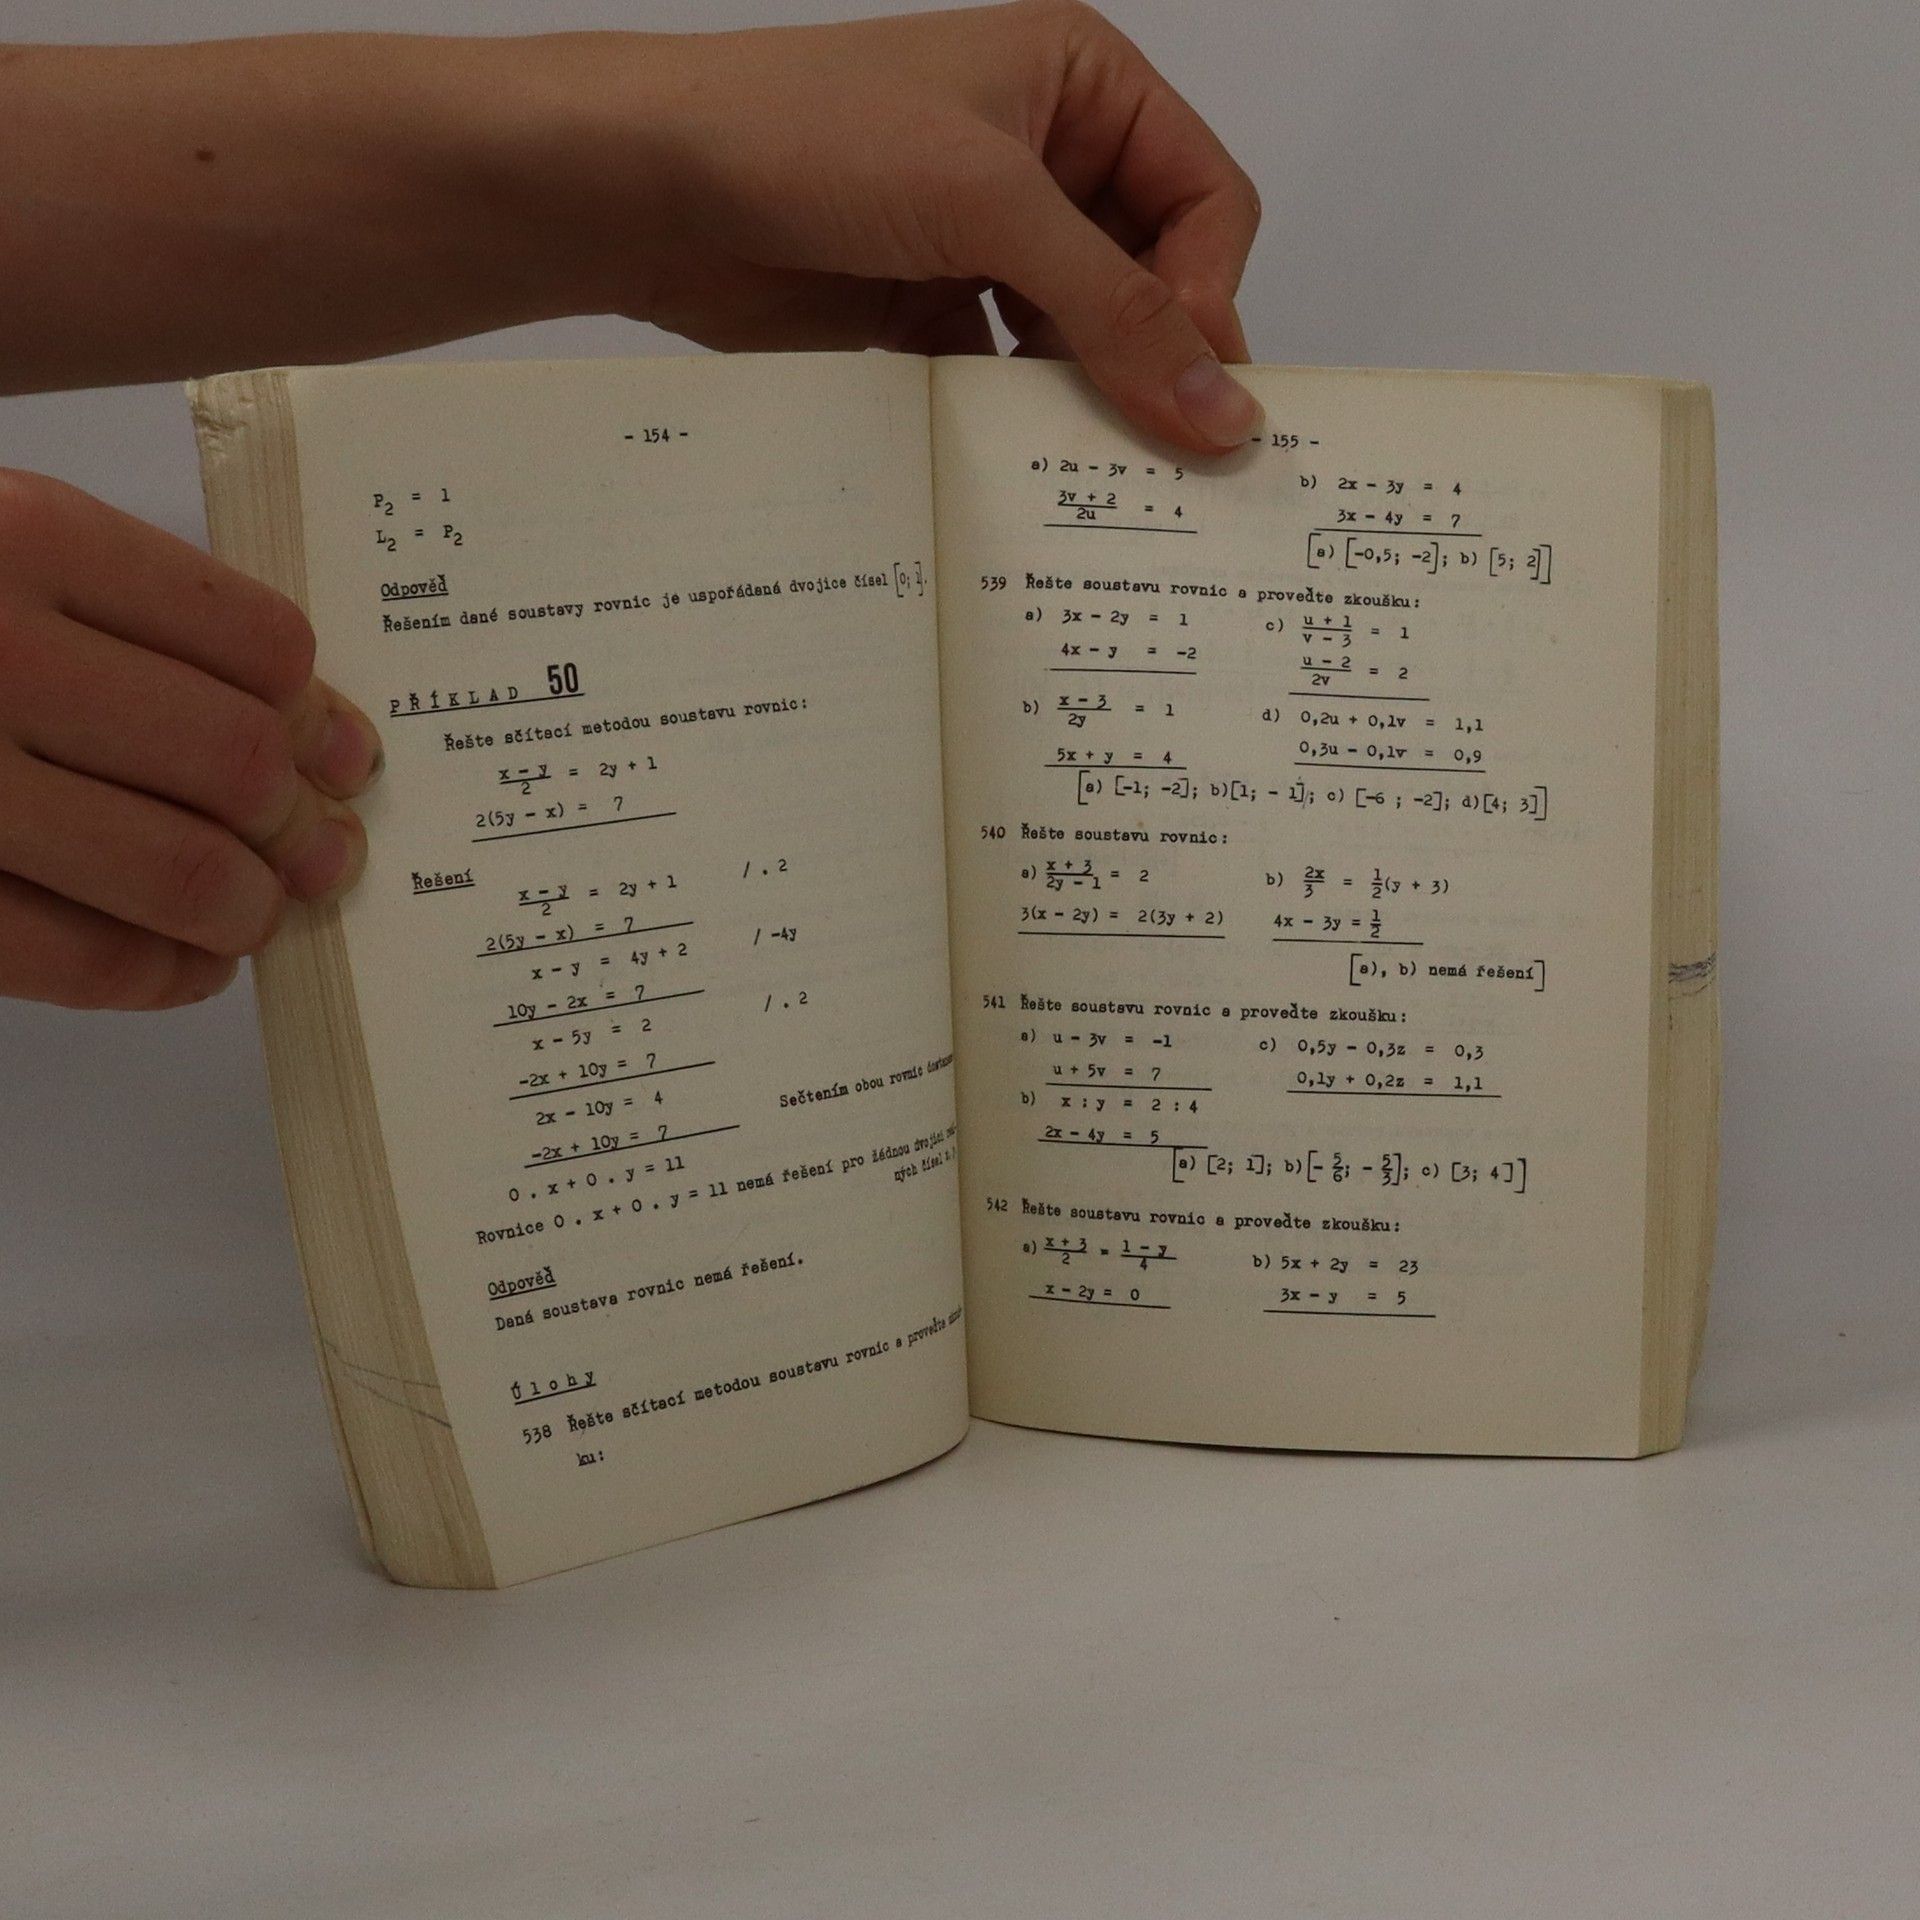 - 154 -
P₂ = 1
L₂ = P₂
Odpověď
Řešením dané soustavy rovnic je uspořádaná dvojice čísel [0; 1].
PŘÍKLAD 50
Řešte sčítací metodou soustavu rovnic:
(x - y)/2 = 2y + 1
2(5y - x) = 7
Řešení
(x - y)/2 = 2y + 1 / . 2
2(5y - x) = 7
x - y = 4y + 2 / -4y
10y - 2x = 7
x - 5y = 2 / . 2
-2x + 10y = 7
2x - 10y = 4
-2x + 10y = 7 Sečtením obou rovnic dostaneme
0 . x + 0 . y = 11
Rovnice 0 . x + 0 . y = 11 nemá řešení pro žádnou dvojici
ných čísel
Odpověď
Daná soustava rovnic nemá řešení.
Úlohy
538 Řešte sčítací metodou soustavu rovnic a proveďte
ku:
- 155 -
a) 2u - 3v = 5
(3v + 2)/2u = 4
b) 2x - 3y = 4
3x - 4y = 7
[a) [-0,5; -2]; b) [5; 2]]
539 Řešte soustavu rovnic a proveďte zkoušku:
a) 3x - 2y = 1
4x - y = -2
c) (u + 1)/(v - 3) = 1
(u - 2)/2v = 2
b) (x - 3)/2y = 1
5x + y = 4
d) 0,2u + 0,1v = 1,1
0,3u - 0,1v = 0,9
[a) [-1; -2]; b)[1; - 1]; c) [-6 ; -2]; d)[4; 3]]
540 Řešte soustavu rovnic:
a) (x + 3)/(2y - 1) = 2
3(x - 2y) = 2(3y + 2)
b) 2x/3 = 1/2(y + 3)
4x - 3y = 1/2
[a), b) nemá řešení]
541 Řešte soustavu rovnic a proveďte zkoušku:
a) u - 3v = -1
u + 5v = 7
c) 0,5y - 0,3z = 0,3
0,1y + 0,2z = 1,1
b) x : y = 2 : 4
2x - 4y = 5
[a) [2; 1]; b)[- 5/6; - 5/3]; c) [3; 4]]
542 Řešte soustavu rovnic a proveďte zkoušku:
a) (x + 3)/2 = (1 - y)/4
x - 2y = 0
b) 5x + 2y = 23
3x - y = 5